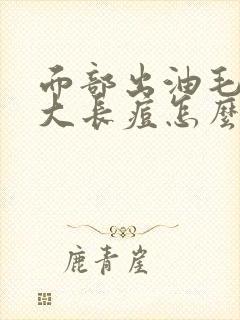 面部出油毛
大长痘怎麼
鹿青崖